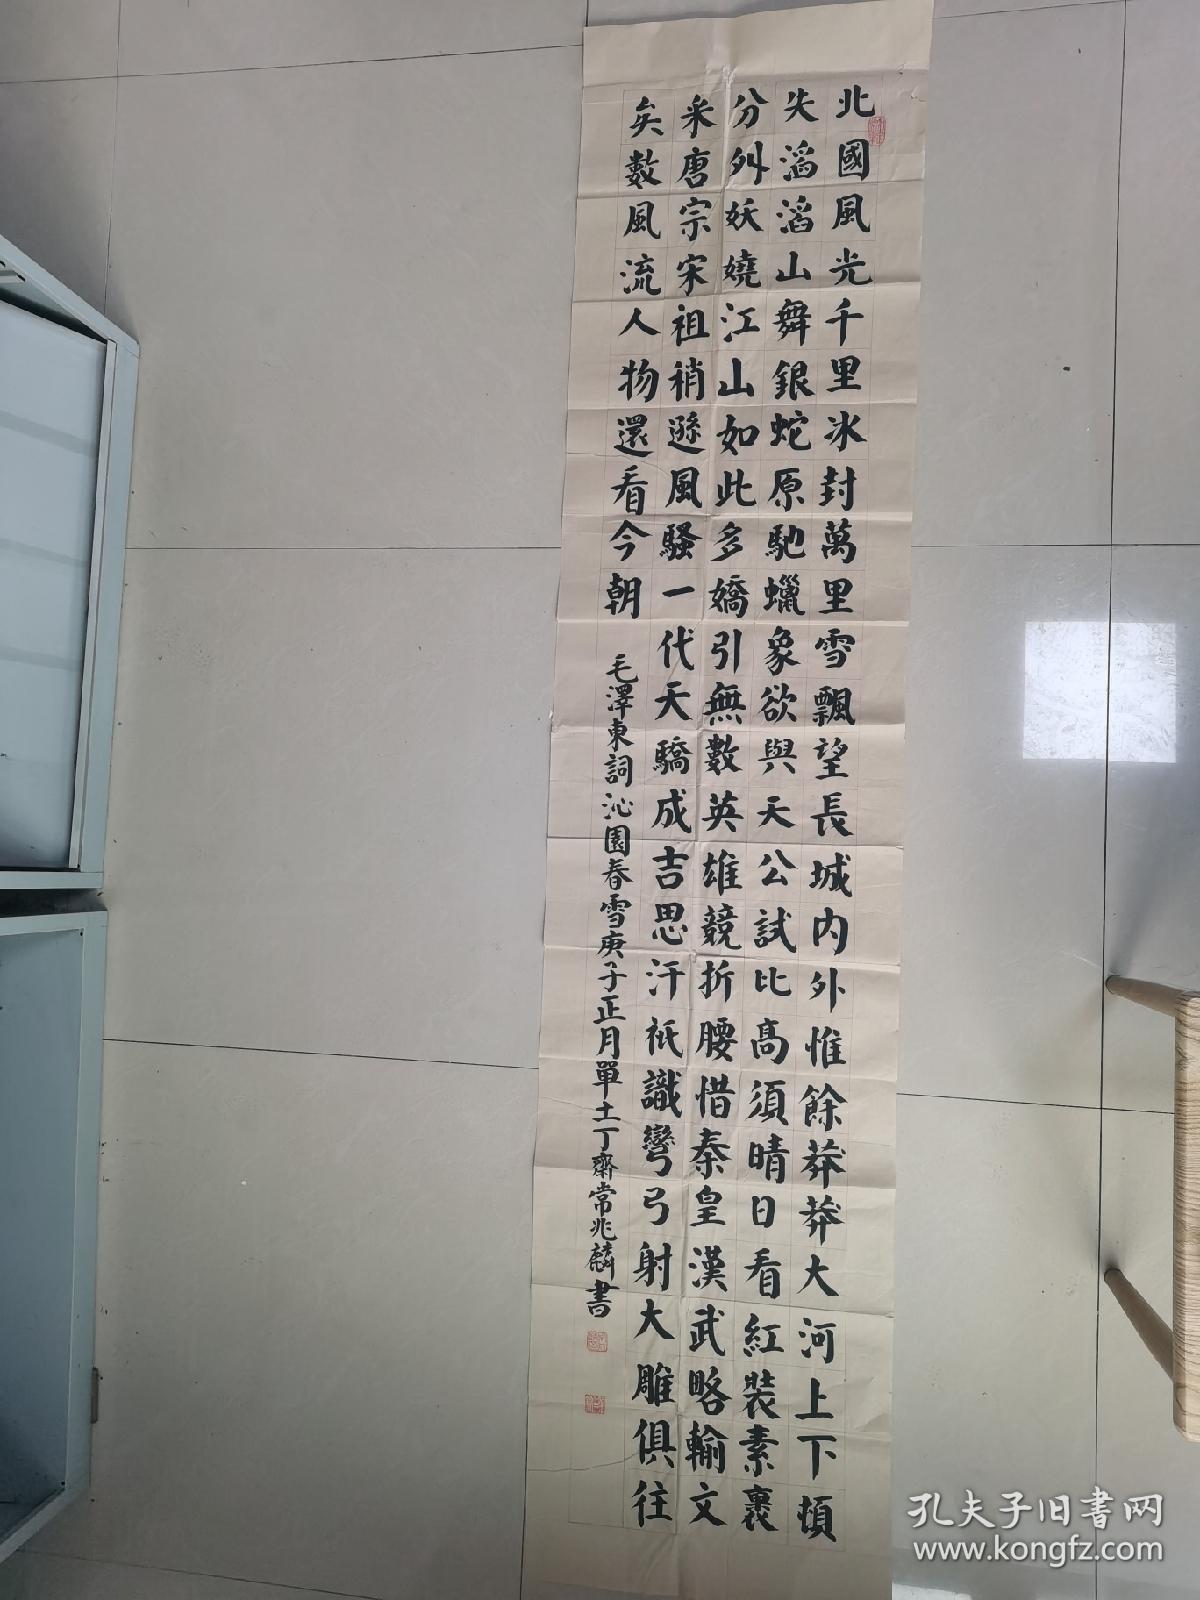 北國風光千里冰封萬里雪飄望長城内外惟餘莽莽大河上下頓
失滔滔山舞銀蛇原馳蠟象欲與天公試比高須晴日看紅裝素裹
分外妖嬈江山如此多嬌引無數英雄競折腰惜秦皇漢武略輸文
采唐宗宋祖稍遜風騷一代天驕成吉思汗祇識彎弓射大雕俱往
矣數風流人物還看今朝
毛澤東詞沁園春雪庚子正月單士丁齋常兆麟書
孔夫子旧书网
www.kongfz.com